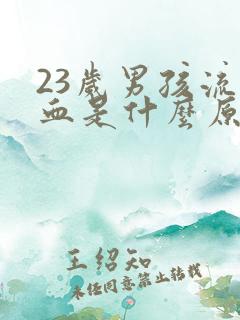 23歲男孩流
血是什麼原
王紹知
未經同意禁止轉載